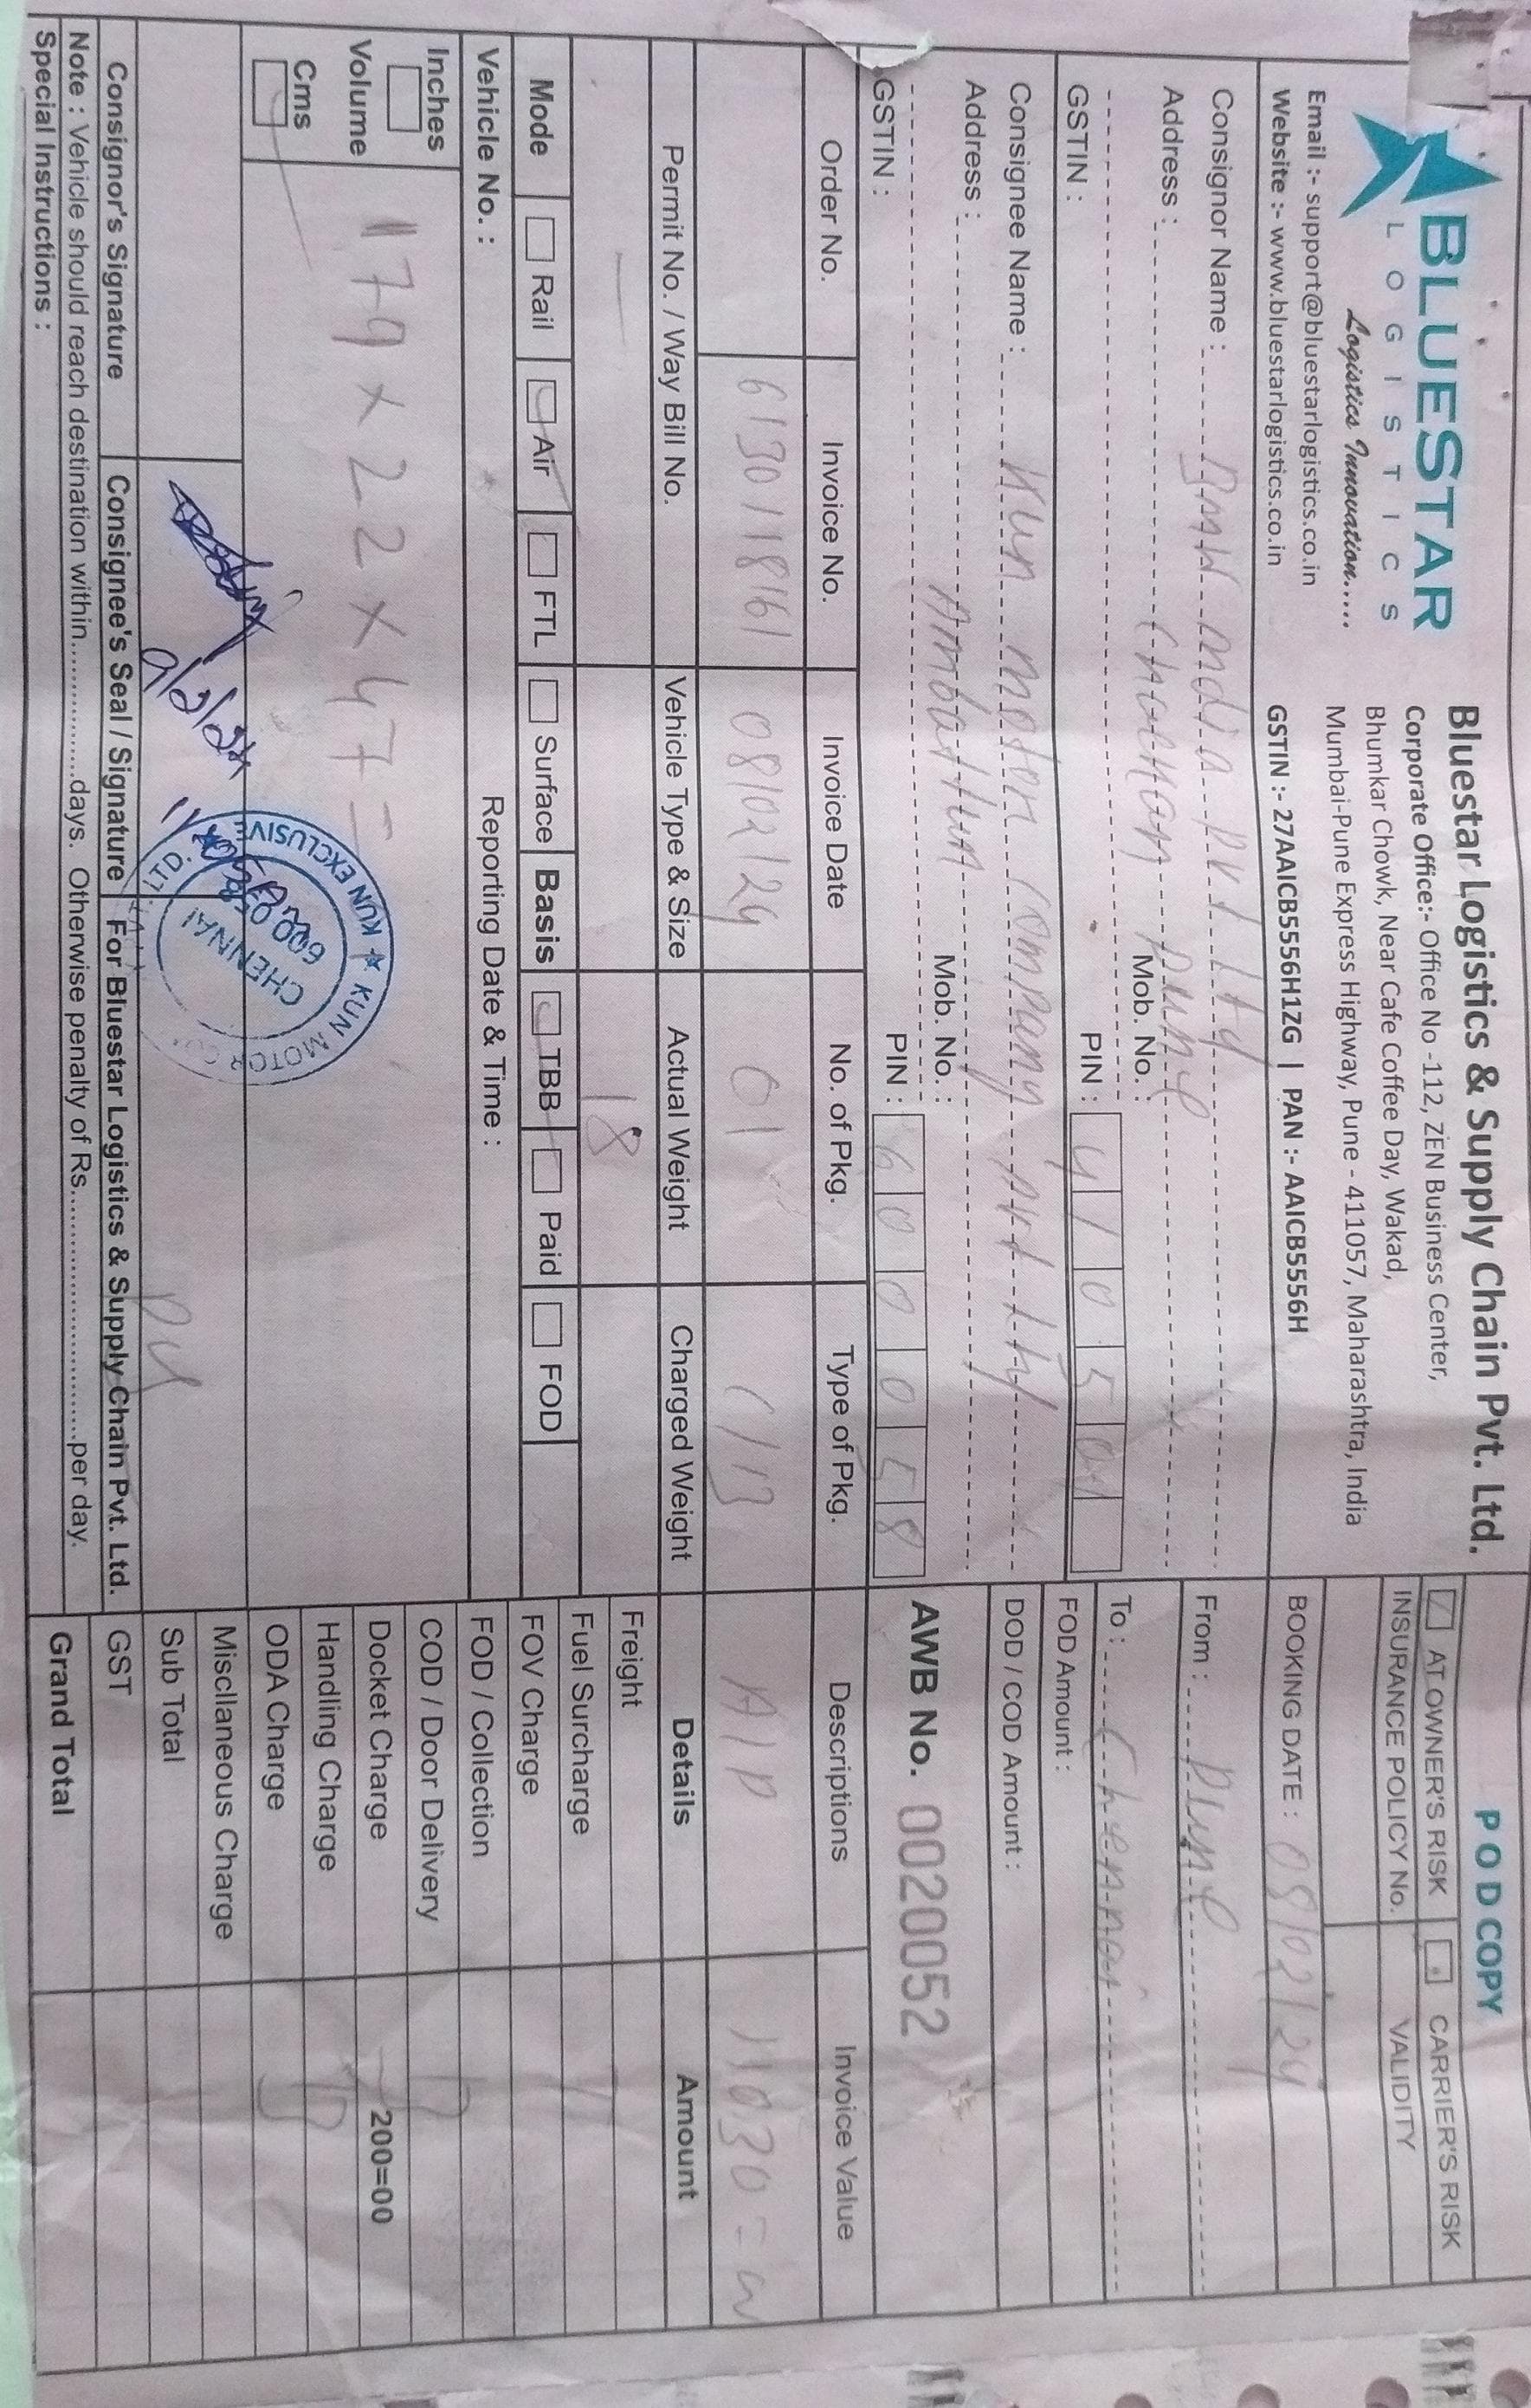 BLUESTAR
LOGISTICS
Logistics Innovation.....
Email :- support@bluestarlogistics.co.in
Website :- www.bluestarlogistics.co.in
Bluestar Logistics & Supply Chain Pvt. Ltd.
Corporate Office:- Office No -112, ZEN Business Center,
Bhumkar Chowk, Near Cafe Coffee Day, Wakad,
Mumbai-Pune Express Highway, Pune - 411057, Maharashtra, India
GSTIN :- 27AAICB5556H1ZG | PAN :- AAICB5556H
POD COPY
AT OWNER'S RISK CARRIER'S RISK
INSURANCE POLICY No. VALIDITY
BOOKING DATE : 08/02/24
From : Pune
To : Chennai
FOD Amount :
DOD / COD Amount :
AWB No. 0020052
Consignor Name : BMW India Pvt Ltd
Address : Chakan Pune
Mob. No. :
PIN : 41050
GSTIN :
Consignee Name : Kun motor company pvt Ltd
Address : Ambattur
Mob. No. :
PIN : 600058
GSTIN :
Order No. Invoice No. Invoice Date No. of Pkg. Type of Pkg. Descriptions Invoice Value
6130118161 08/02/24 01 C/B A/P
Permit No. / Way Bill No. Vehicle Type & Size Actual Weight Charged Weight Details Amount
— 18
Mode Rail Air FTL Surface Basis TBB Paid FOD
Vehicle No. : Reporting Date & Time :
Inches
Volume
Cms
179 x 22 x 47 =
Freight
Fuel Surcharge
FOV Charge
FOD / Collection
COD / Door Delivery
Docket Charge 200=00
Handling Charge
ODA Charge
Miscllaneous Charge
Sub Total
GST
Grand Total
9/2/24
KUN MOTOR CO. PVT. LTD. ★ KUN EXCLUSIVE ★
CHENNAI
600 058
Consignor's Signature Consignee's Seal / Signature For Bluestar Logistics & Supply Chain Pvt. Ltd.
Note : Vehicle should reach destination within................days. Otherwise penalty of Rs.............................per day.
Special Instructions :